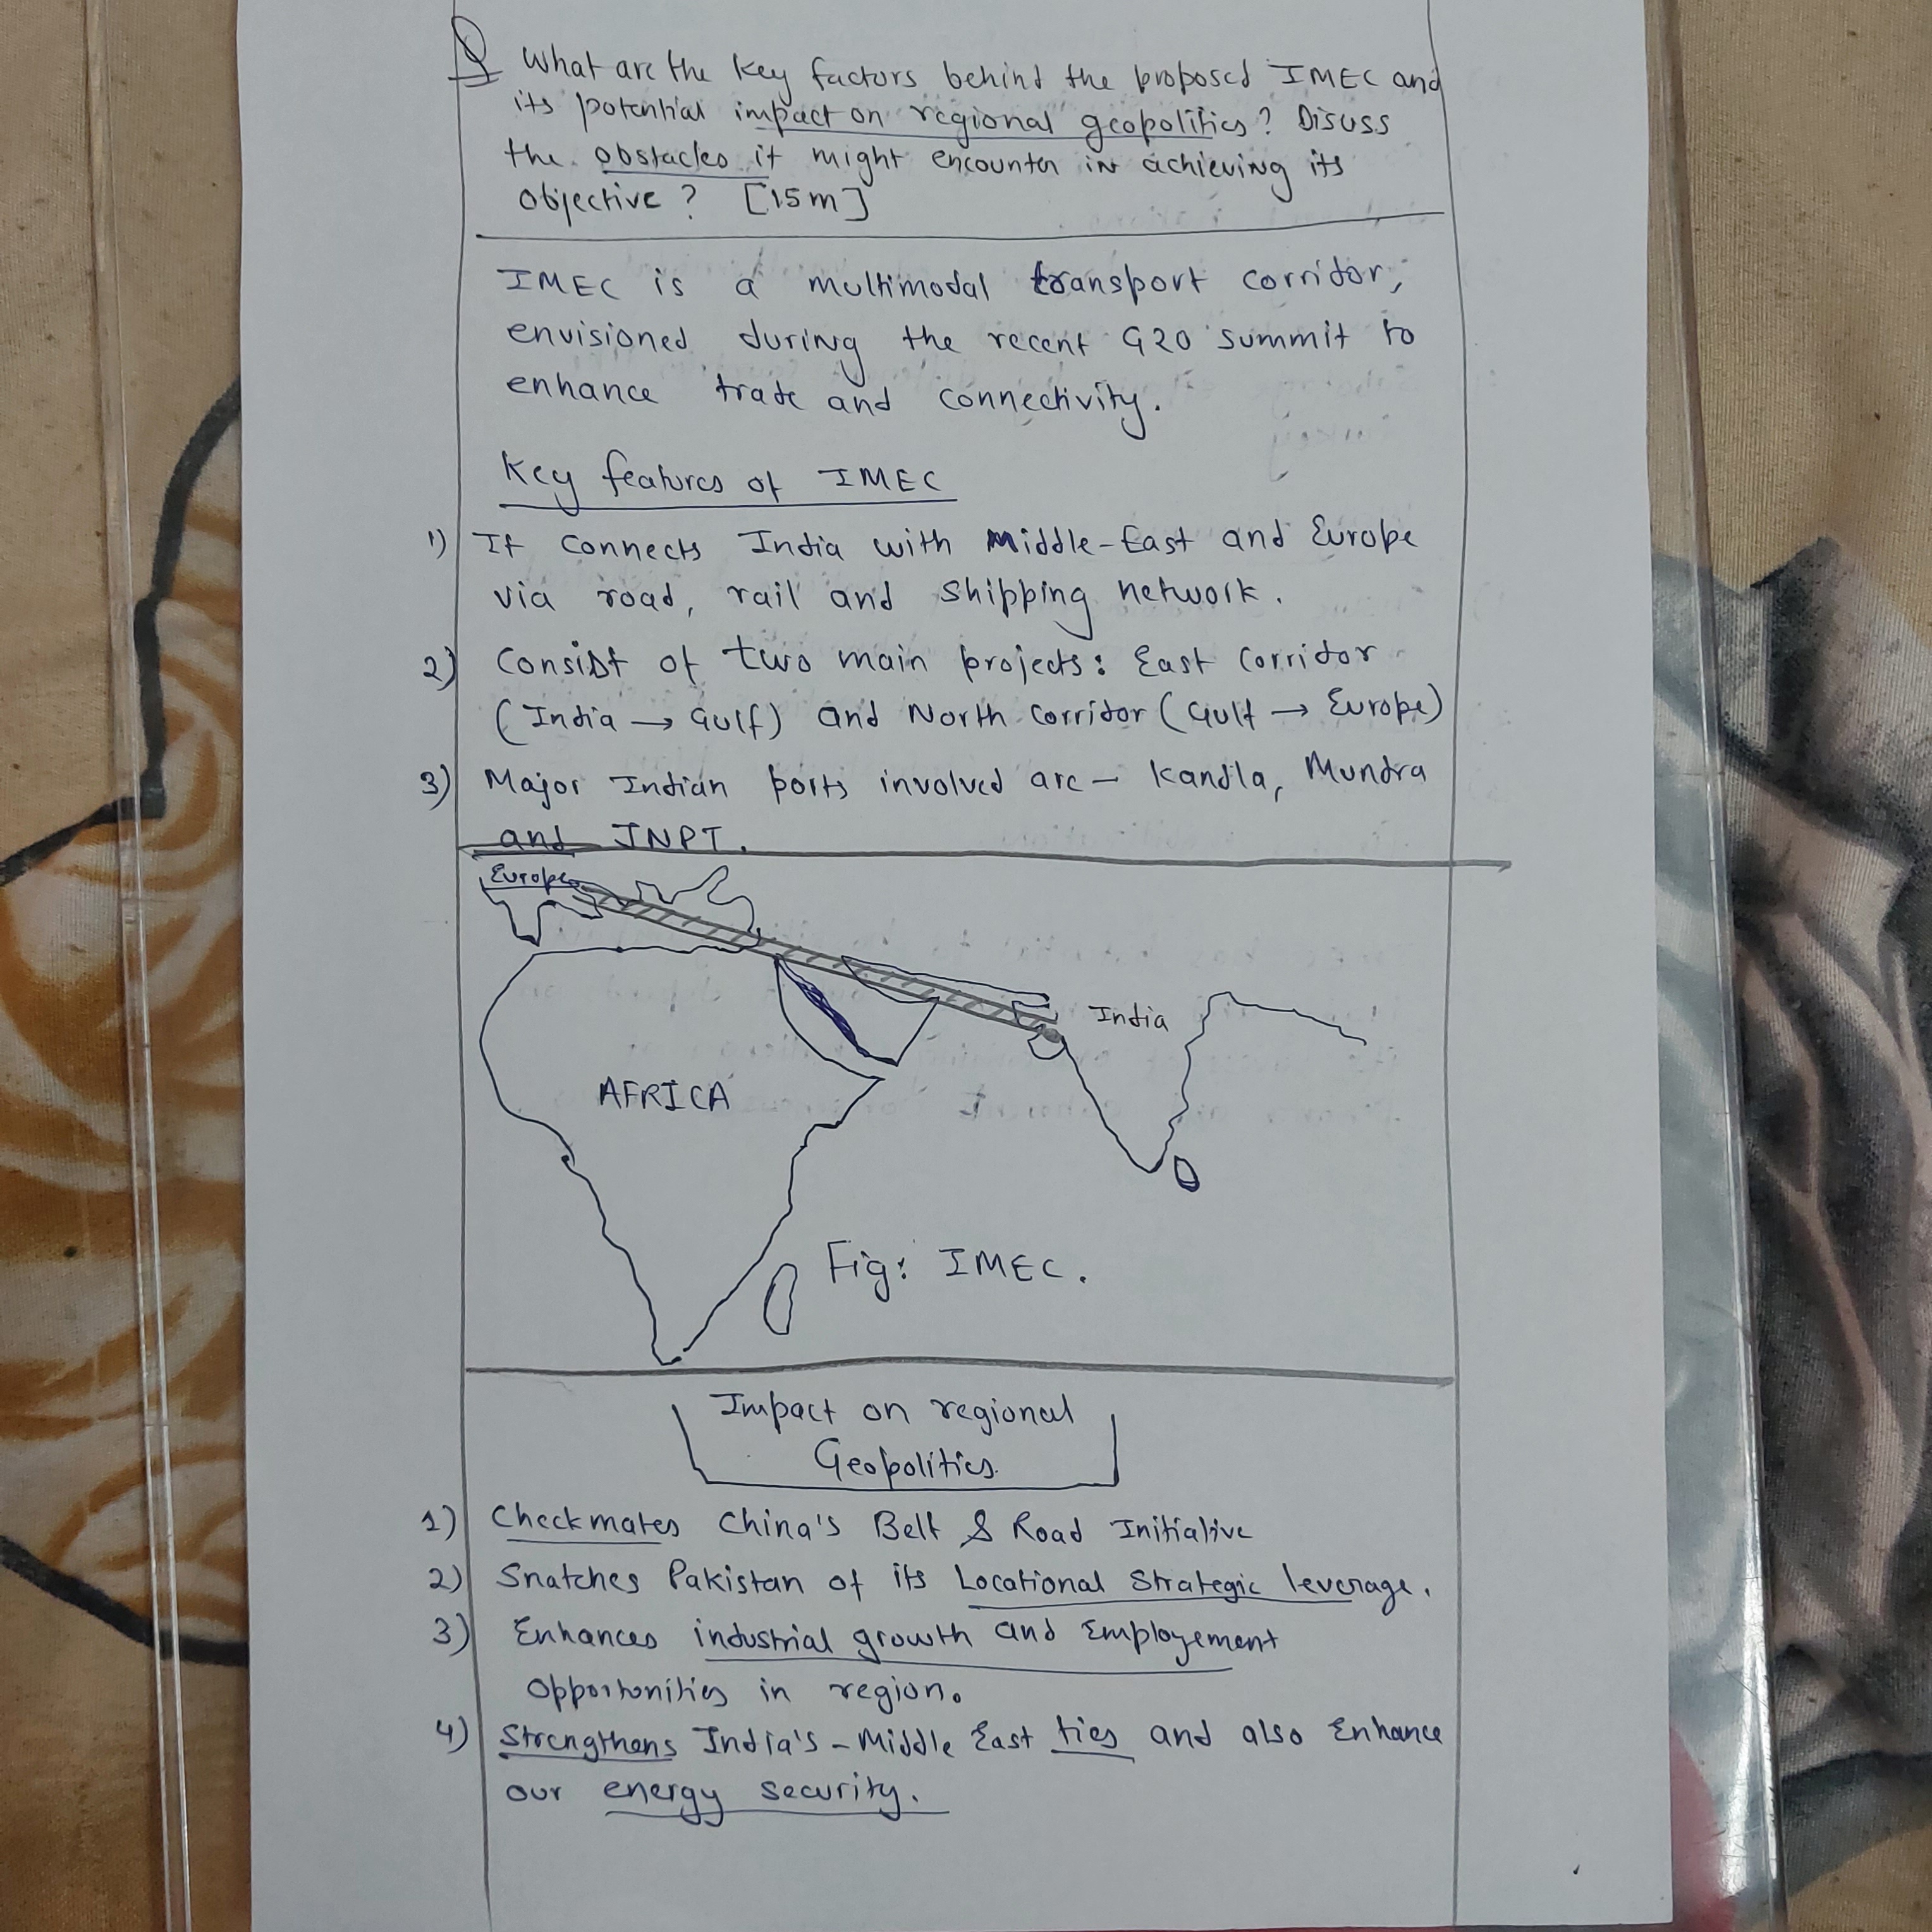 Q What are the key factors behind the proposed IMEC and
its potential impact on regional geopolitics? Disuss
the obstacles it might encounter in achieving its
objective? [15m]
IMEC is a multimodal transport corridor,
envisioned during the recent G20 summit to
enhance trade and connectivity.
Key features of IMEC
1) It connects India with Middle-East and Europe
via road, rail and shipping network.
2) Consist of two main projects: East Corridor
(India → Gulf) and North Corridor (Gulf → Europe)
3) Major Indian ports involved are – Kandla, Mundra
and JNPT.
Europe
India
AFRICA
Fig: IMEC.
Impact on regional
Geopolitics.
1) Checkmates China's Belt & Road Initiative
2) Snatches Pakistan of its Locational Strategic leverage.
3) Enhances industrial growth and Employement
opportunities in region.
4) Strengthens India's – Middle East ties and also Enhance
our energy security.